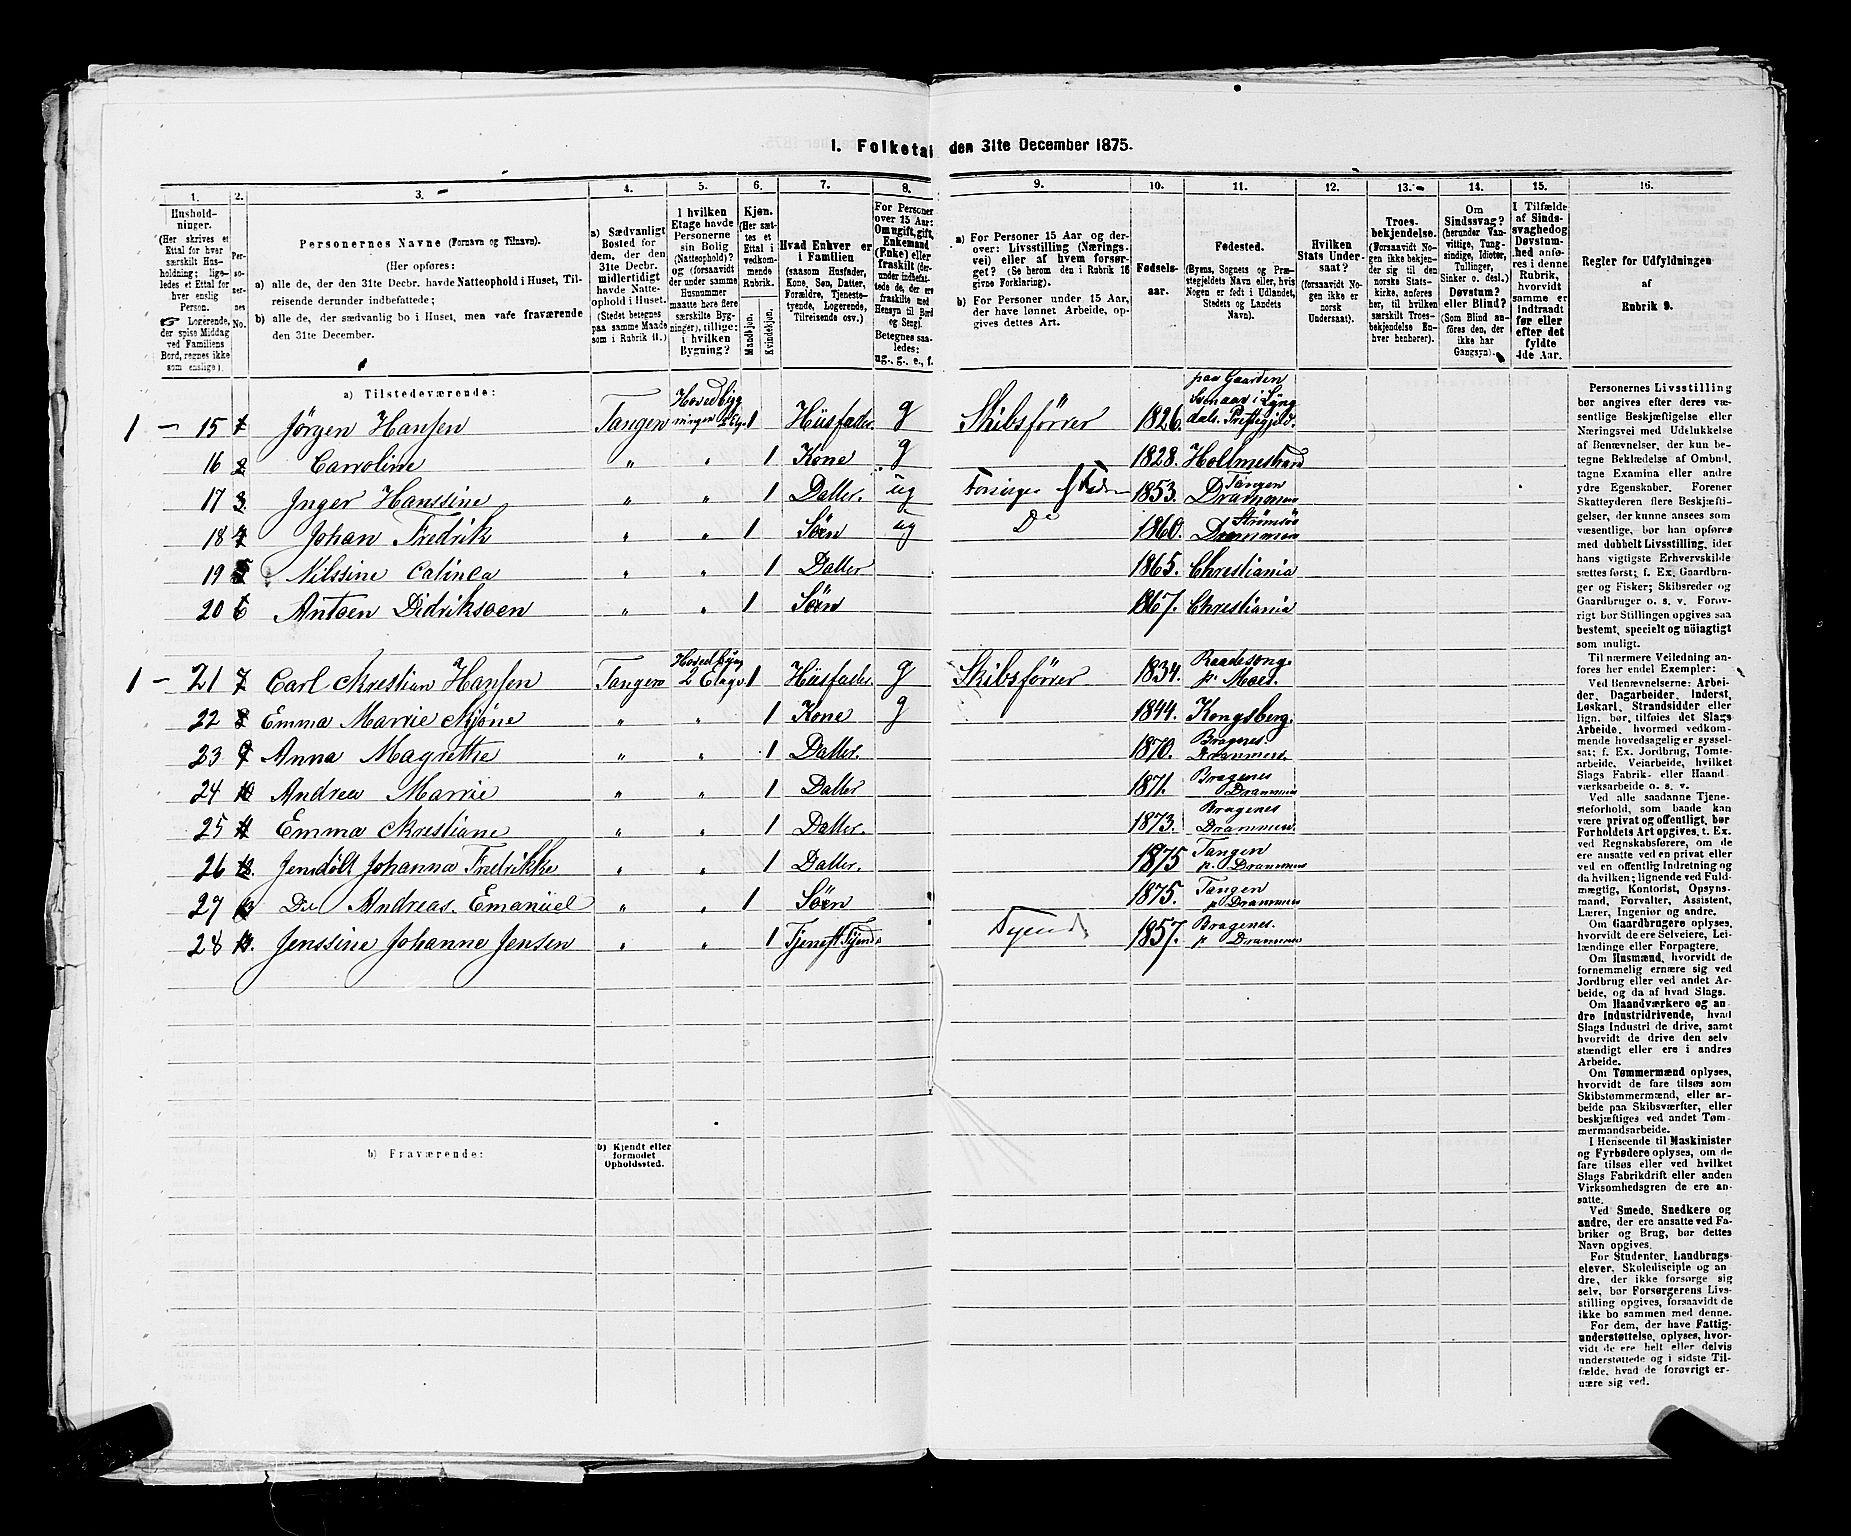 1. Folketal den 31te December 1875.
1. 2. 3. 4. 5. 6. 7. 8. 9. 10. 11. 12. 13. 14. 15. 16.
Husholdninger.
(Her skrives et
Ettal for hver
særskilt Hus-
holdning; lige-
ledes et Ettal for
hver enslig
Person.
Logerende,
der spise Middag
ved Familiens
Bord, regnes ikke
som enslige).
Per-
so-
ner-
nes
No.
Personernes Navne (Fornavn og Tilnavn).
(Her opføres:
a) alle de, der den 31te Decbr. havde Natteophold i Huset, Til-
reisende derunder indbefattede;
b) alle de, der sædvanlig bo i Huset, men vare fraværende
den 31te December.
a) Sædvanligt
Bosted for
dem, der den
31te Decbr.
midlertidigt
havde Natte-
ophold i Huset.
(Stedet betegnes
paa samme Maade
som i Rubrik 11.)
I hvilken
Etage havde
Personerne
sin Bolig
(Natteophold)?
og (forsaavidt
der under samme
Husnummer
maatte høre flere
særskilte Byg-
ninger), tillige:
i hvilken
Bygning?
Kjøn.
(Her sæt-
tes et
Ettal i
vedkom-
mende
Rubrik.
Mandkjøn.
Kvindekjøn.
Hvad Enhver er
i Familien
(saasom Husfader,
Kone, Søn, Datter,
Forældre, Tjeneste-
tyende, Logerende,
Tilreisende osv.)
For Personer
over 15 Aar:
Om ugift, gift,
Enkemand
(Enke) eller
fraskilt (der-
under indbefat-
tede de, der ere
fraskilte med
Hensyn til Bord
og Seng).
Betegnes saa-
ledes:
ug., g., e., f.
a) For Personer 15 Aar og der-
over: Livsstilling (Nærings-
vei) eller af hvem forsør-
get? (Se herom den i Rubrik 16
givne Forklaring).
b) For Personer under 15 Aar,
der have lønnet Arbeide, op-
gives dettes Art.
Fødsels-
aar.
Fødested.
(Byens, Sognets og Præ-
stegjeldets Navn eller, hvis
Nogen er født i Udlandet,
Stedets og Landets
Navn).
Hvilken
Stats Under-
saat?
(forsaavidt No-
gen ikke er
norsk
Undersaat).
Troes-
bekjendelse.
(Forsaavidt No-
gen ikke bekjen-
der sig til den
norske Stats-
kirke, anføres
her, til hvilken
særskilt Troes-
bekjendelse En-
hver henhører).
Om
Sindssvag?
(herunder Van-
vittige, Tung-
sindige, Idioter,
Tullinger,
Sinker o. desl.)
Døvstum?
eller Blind?
(Som Blind an-
føres den, der
ikke har
Gangsyn).
I Tilfælde
af Sinds-
svaghed og
Døvstum-
hed anfø-
res i denne
Rubrik,
hvorvidt
samme er
indtraadt
før eller
efter det
fyldte
4de Aar.
Regler for Udfyldningen
af
Rubrik 9.
a) Tilstedeværende:
1 – 15 1 Jørgen Hansen Tangen Hovedbygningen 2 Etg. 1 Husfader. g Skibsfører 1826. paa Gaarden Svenaas i Lyngdals Prestegjeld.
16 2 Carroline " " 1 Kone g 1828. Hollmestrand
17 3 Inger Hanssine " " 1 Datter. ug Forsørges af Fader 1853. Tangen Drammen
18 4 Johan Fredrik " " 1 Søen ug Do 1860. Strømsø Drammen
19 5 Nilssine Catinca " " 1 Datter 1865. Christiania
20 6 Antoen Didriksoen " " 1 Søen 1867. Christiania
1 – 21 7 Carl Kristian Hansen Tangen Hovedbyng 2 Etage 1 Husfader. g Skibsfører 1834. Raadesong. p. Moss.
22 8 Emma Marie Kjøne " " 1 Kone g 1844. Kongsberg.
23 9 Anna Magrethe " " 1 Datter. 1870. Bragenes Drammen.
24 10 Andrea Marrie " " 1 Datter 1871. Bragenes Drammen
25 11 Emma Krestiane " " 1 Datter. 1873. Bragenes Drammen.
26 12. Johanna Fredrikke " " 1 Datter. 1875 Tangen p. Drammen
27 13 Do Andreas. Emanuel " " 1 Søen 1875. Tangen p Drammen
28 14. Jenssine Johanne Jensen " " 1 Tjenest. Tyende Tyende 1857. Bragenes. p Drammen
b) Fraværende:
b) Kjendt eller
formodet
Opholdssted.
Personernes Livsstilling
bør angives efter deres væ-
sentlige Beskjæftigelse eller
Næringsvei med Udelukkelse
af Benævnelser, der kun be-
tegne Beklædelse af Ombud,
tagne Examina eller andre
ydre Egenskaber. Forener
Skatteyderen flere Beskjæfti-
gelser, der kunne ansees som
væsentlige, bør han opføres
med dobbelt Livsstilling, idet
hans vigtigste Erhvervskilde
sættes først; f. Ex. Gaardbru-
ger og Fisker; Skibsreder og
Gaardbruger o. s. v. Forøv-
rigt bør Stillingen opgives saa
bestemt, specielt og nøiagtigt
som muligt.
Til nærmere Veiledning an-
føres her endel Exempler:
Ved Benævnelserne: Arbei-
der, Dagarbeider, Inderst,
Løskarl, Strandsidder eller
lign. bør tilføies det Slags
Arbeide, hvormed vedkom-
mende hovedsagelig er syssel-
sat; f. Ex. Jordbrug, Tomte-
arbeide, Veiarbeide, hvilket
Slags Fabrik- eller Haand-
værksarbeide o. s. v.
Ved alle saadanne Tjene-
steforhold, som baade kan
være privat og offentligt, bør
Forholdets Art opgives, t. Ex.
ved Regnskabsførere, om de
ere ansatte ved en privat eller
ved en offentlig Indretning og
da hvilken; lignende ved Fuld-
mægtig, Kontorist, Opsyns-
mand, Forvalter, Assistent,
Lærer, Ingeniør og andre.
Om Gaardbrugere oplyses,
hvorvidt de ere Selveiere, Lei-
lændinge eller Forpagtere.
Om Husmænd, hvorvidt de
fornemmelig ernære sig ved
Jordbrug eller ved andet Ar-
beide, og da af hvad Slags.
Om Haandværkere og an-
dre Industridrivende, hvad
Slags Industri de drive, samt
hvorvidt de drive den selv-
stændigt eller ere i andres
Arbeide.
Om Tømmermænd oplyses,
hvorvidt de fare tilsøs som
Skibstømmermænd, eller ar-
beide paa Skibsværfter, eller
beskjæftiges ved andet Tøm-
mermandsarbeide.
I Henseende til Maskinister
og Fyrbødere oplyses, om de
fare tilsøs eller ved hvilket
Slags Fabrikdrift eller anden
Virksomhedsgren de ere an-
satte.
Ved Smede, Snedkere og
andre, der ere ansatte ved Fa-
briker og Brug, bør dettes
Navn opgives.
For Studenter, Landbrugs-
elever, Skoledisciple og an-
dre, der ikke forsørge sig
selv, bør Forsørgerens Livs-
stilling opgives, forsaavidt de
ikke bo sammen med denne.
For dem, der have Fattig-
understøttelse, oplyses, hvor-
vidt de ere helt eller delvis
understøttede og i sidste Til-
fælde, hvad de forøvrigt er-
nære sig ved.